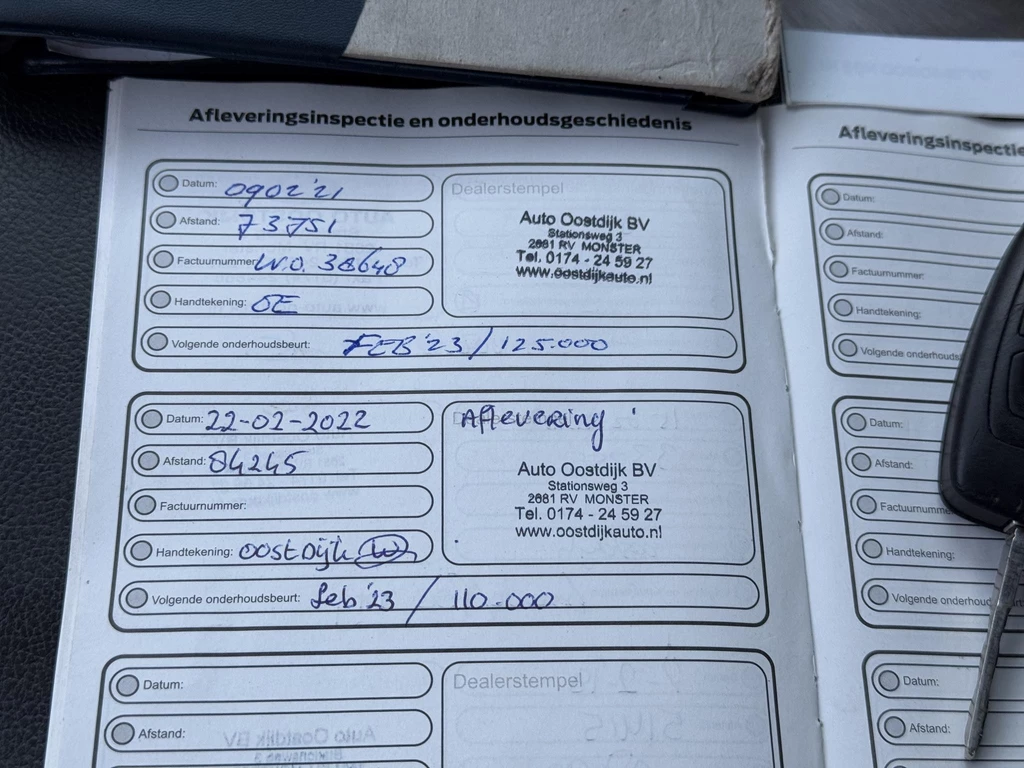 Afleveringsinspectie en onderhoudsgeschiedenis
Datum: 0902'21
Afstand: 73751
Factuurnummer: W.O. 38648
Handtekening: OE
Volgende onderhoudsbeurt: FEB '23 / 125.000
Dealerstempel
Auto Oostdijk BV
Stationsweg 3
2681 RV MONSTER
Tel. 0174 - 24 59 27
www.oostdijkauto.nl
Datum: 22-02-2022
Afstand: 84245
Factuurnummer:
Handtekening: oostdijk
Volgende onderhoudsbeurt: feb '23 / 110.000
Aflevering
Auto Oostdijk BV
Stationsweg 3
2681 RV MONSTER
Tel. 0174 - 24 59 27
www.oostdijkauto.nl
Datum:
Afstand:
Dealerstempel
Afleveringsinspectie
Datum:
Afstand:
Factuurnummer:
Handtekening:
Volgende onderhouds
Datum:
Afstand:
Factuurnumme
Handtekening:
Volgende onderhoud
Datum:
Afstand: